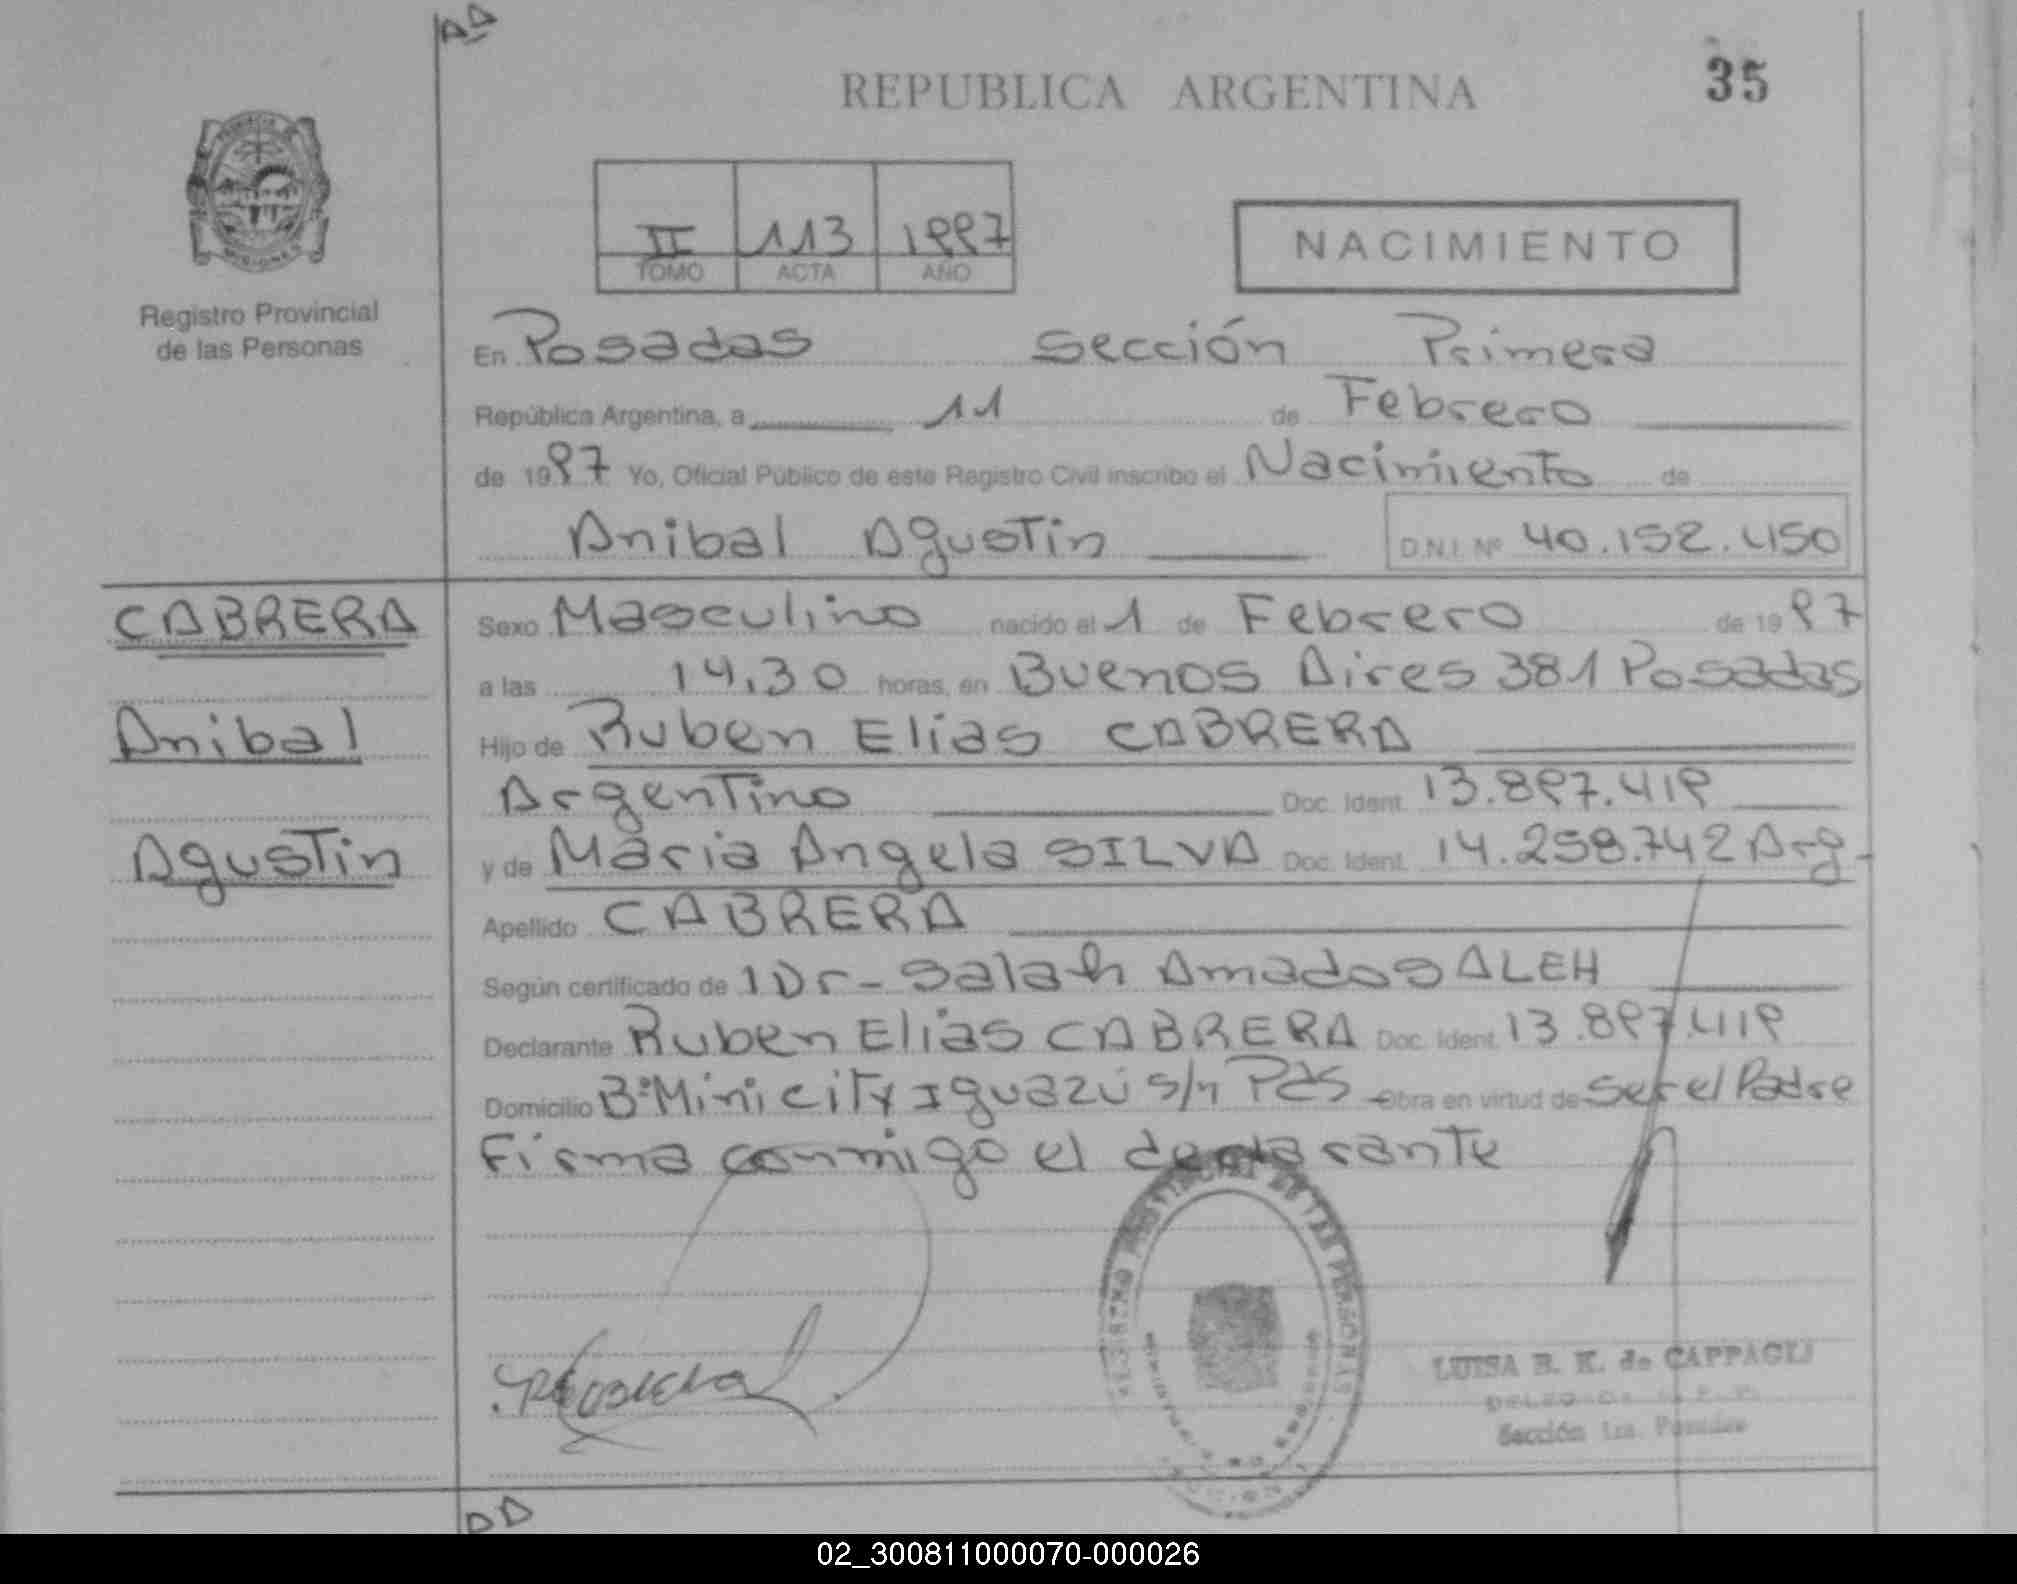 REPUBLICA ARGENTINA
35
PROVINCIA DE
MISIONES
Registro Provincial
de las Personas
II 113 1997
TOMO ACTA AÑO
NACIMIENTO
En Posadas sección Primera
República Argentina, a 11 de Febrero
de 1997 Yo, Oficial Público de este Registro Civil inscribo el Nacimiento de
Anibal Agustin D.N.I. Nº 40.152.450
CABRERA
Anibal
Agustin
Sexo Masculino nacido el 1 de Febrero de 1997
a las 14,30 horas, en Buenos Aires 381 Posadas
Hijo de Ruben Elias CABRERA
Argentino Doc. Ident. 13.897.419
y de Maria Angela SILVA Doc. Ident. 14.258.742 Arg-
Apellido CABRERA
Según certificado de 1 Dr- Salah Amados ALEH
Declarante Ruben Elias CABRERA Doc. Ident. 13.897.419
Domicilio Bº Minicity Iguazú s/n Pds Obra en virtud de ser el Padre
Firma conmigo el declarante
REGISTRO PROVINCIAL DE LAS PERSONAS
LUISA B. K. de CAPPAGLI
Sección 1ra. Posadas
02_300811000070-000026